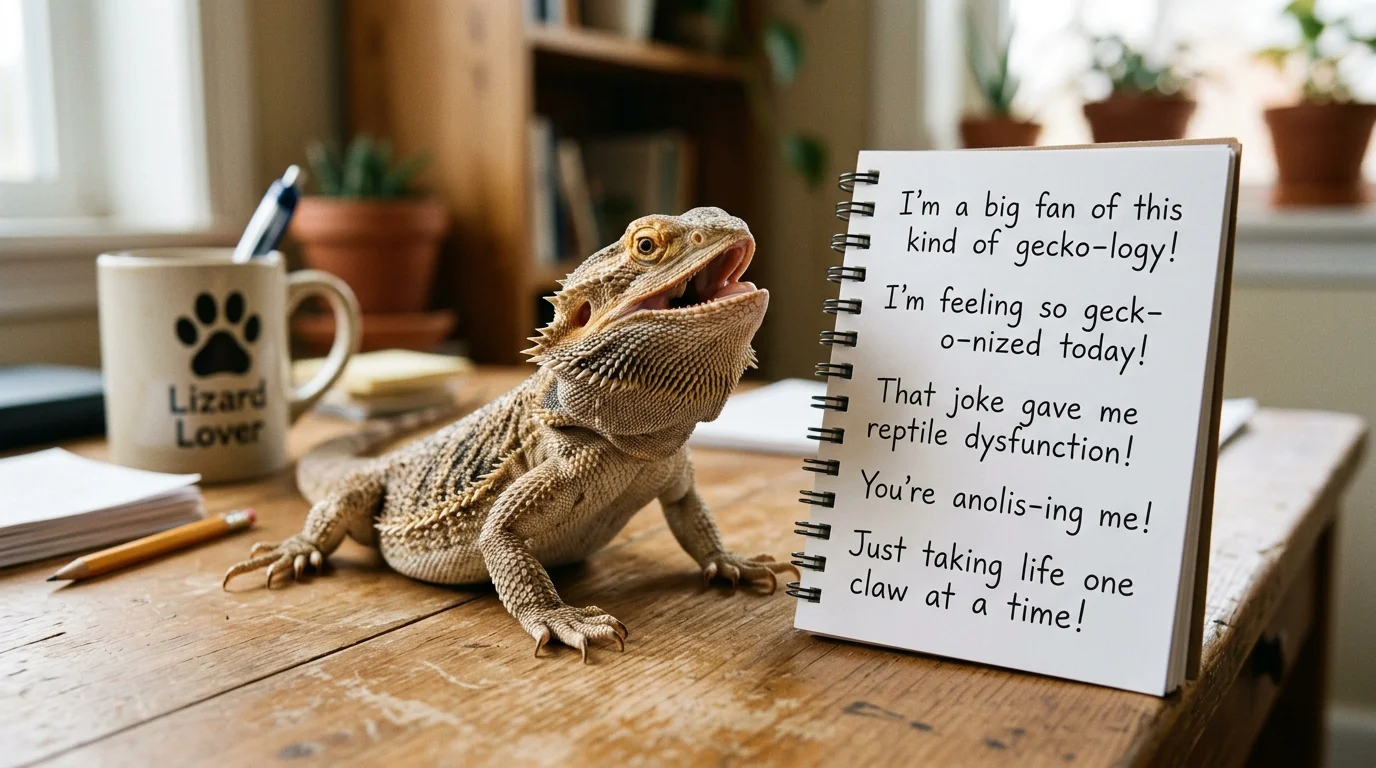 Lizard
Lover
I'm a big fan of this
kind of gecko-logy!
I'm feeling so geck-
o-nized today!
That joke gave me
reptile dysfunction!
You're anolis-ing me!
Just taking life one
claw at a time!